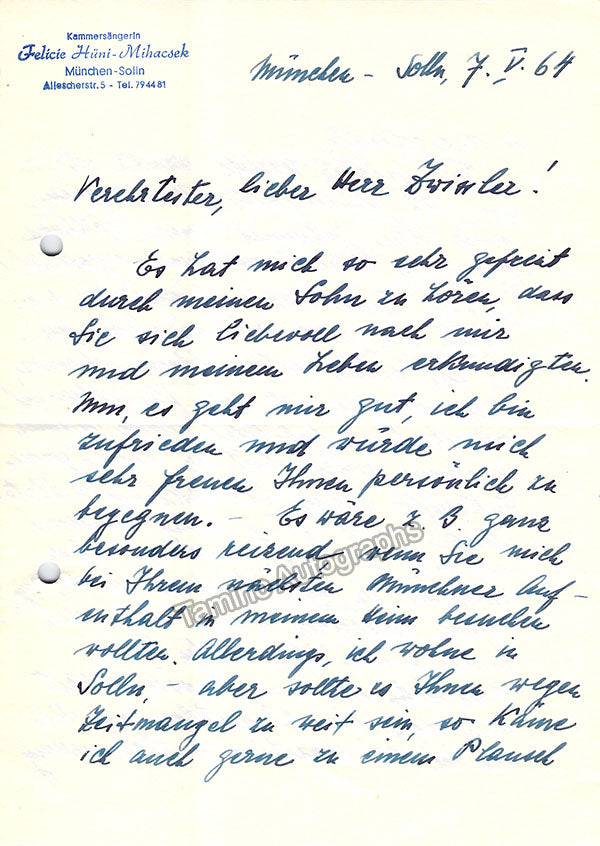 Kammersängerin
Felicie Hüni-Mihacsek
München-Solln
Allescherstr. 5 - Tel. 794481
München - Solln, 7. V. 64
Verehrtester, lieber Herr
Es hat mich so sehr gefreut
durch meinen Sohn zu hören, dass
Sie sich liebevoll nach mir
und meinem Leben erkundigten.
Nun, es geht mir gut, ich bin
zufrieden und würde mich
sehr freuen Ihnen persönlich zu
begegnen. - Es wäre z. B. ganz
besonders reizend, wenn Sie mich
bei Ihrem nächsten Münchner Auf-
enthalt in meinem Heim besuchen
wollten. Allerdings, ich wohne in
Solln, - aber sollte es Ihnen wegen
Zeitmangel zu weit sein, so käme
ich auch gerne zu einem Plausch
Tamino Autographs